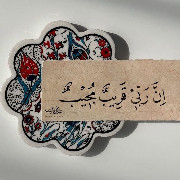 اِنَّ رَبّ۪ي قَر۪يبٌ مُج۪يبٌ